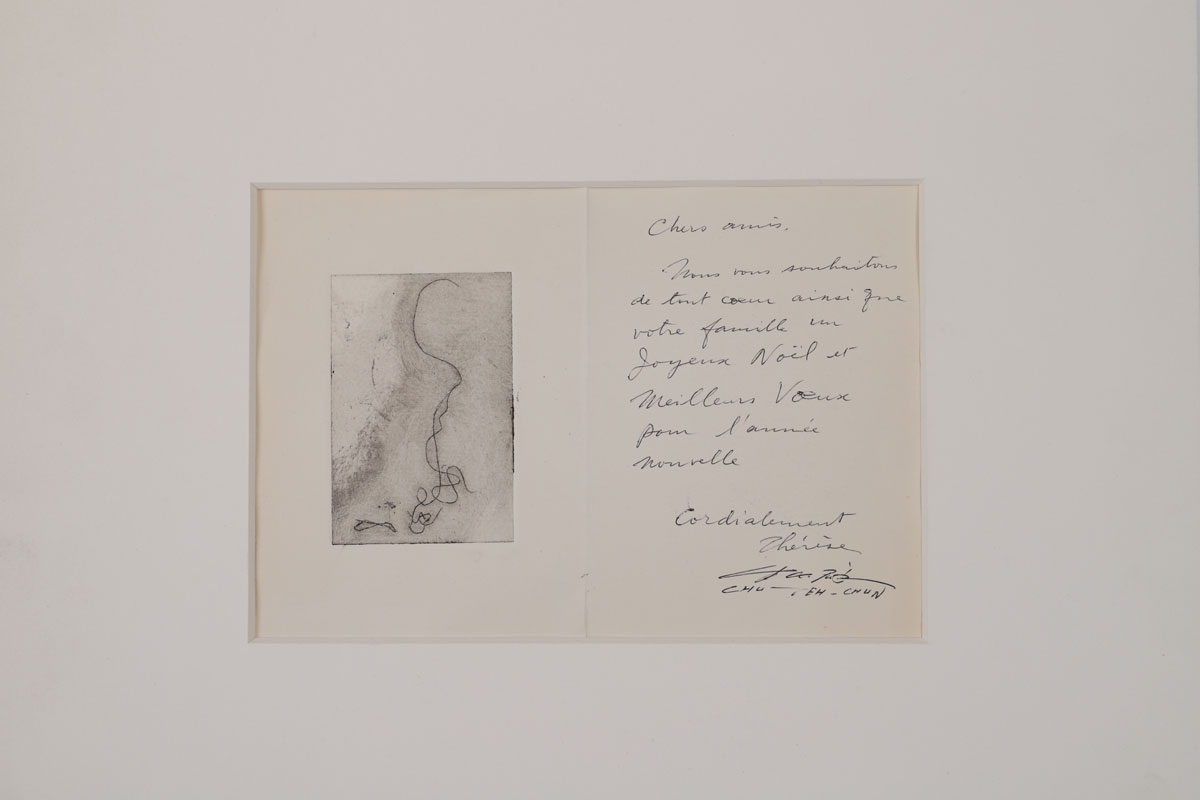 Chers amis,
Nous vous souhaitons
de tout cœur ainsi que
votre famille un
Joyeux Noël et
Meilleurs Vœux
pour l'année
nouvelle
Cordialement
Thérèse
CHU EH-CHUN